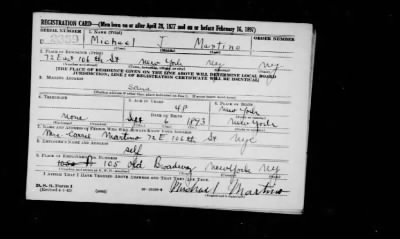 REGISTRATION CARD—(Men born on or after April 28, 1877 and on or before February 16, 1897)
SERIAL NUMBER 1. NAME (Print) ORDER NUMBER
Michael J Martino
(First) (Middle) (Last)
2. PLACE OF RESIDENCE (Print)
72 East 106th St New York NY NY
[THE PLACE OF RESIDENCE GIVEN ON THE LINE ABOVE WILL DETERMINE LOCAL BOARD
JURISDICTION; LINE 2 OF REGISTRATION CERTIFICATE WILL BE IDENTICAL]
3. MAILING ADDRESS
Same
4. TELEPHONE 5. AGE IN YEARS 6. PLACE OF BIRTH
48 New York
DATE OF BIRTH
none 1893 New York
7. NAME AND ADDRESS OF PERSON WHO WILL ALWAYS KNOW YOUR ADDRESS
Martino 72 E 106th St NYC
8. EMPLOYER'S NAME AND ADDRESS
self
9. PLACE OF EMPLOYMENT OR BUSINESS
105 old Broadway New York NY
I AFFIRM THAT I HAVE VERIFIED ABOVE ANSWERS AND THAT THEY ARE TRUE.
D. S. S. Form 1
Michael Martino